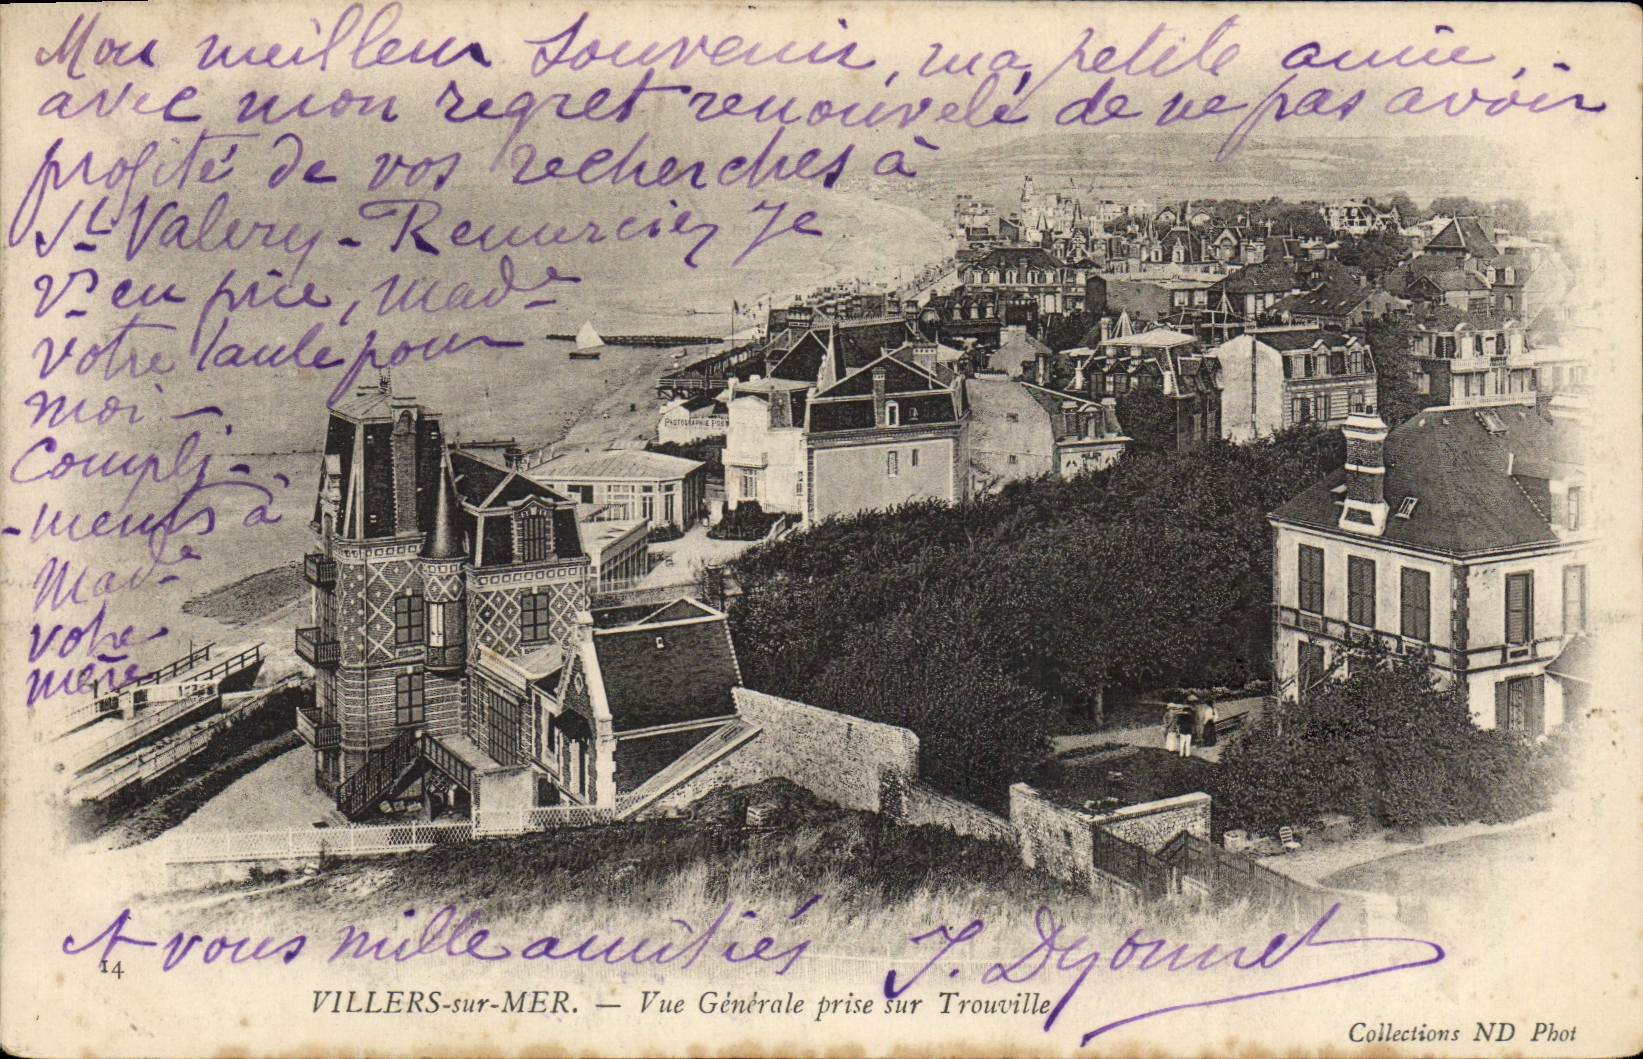 Mon meilleur souvenir, ma petite amie,
avec mon regret renouvelé de ne pas avoir
profité de vos recherches à
St Valery - Remerciez je
vs en prie, Made
votre tante pour
moi -
Compli-
-ments à
Made
votre
mère
PHOTOGRAPHIE
A vous mille amitiés J. Dyonnet
14
VILLERS-sur-MER. — Vue Générale prise sur Trouville
Collections ND Phot